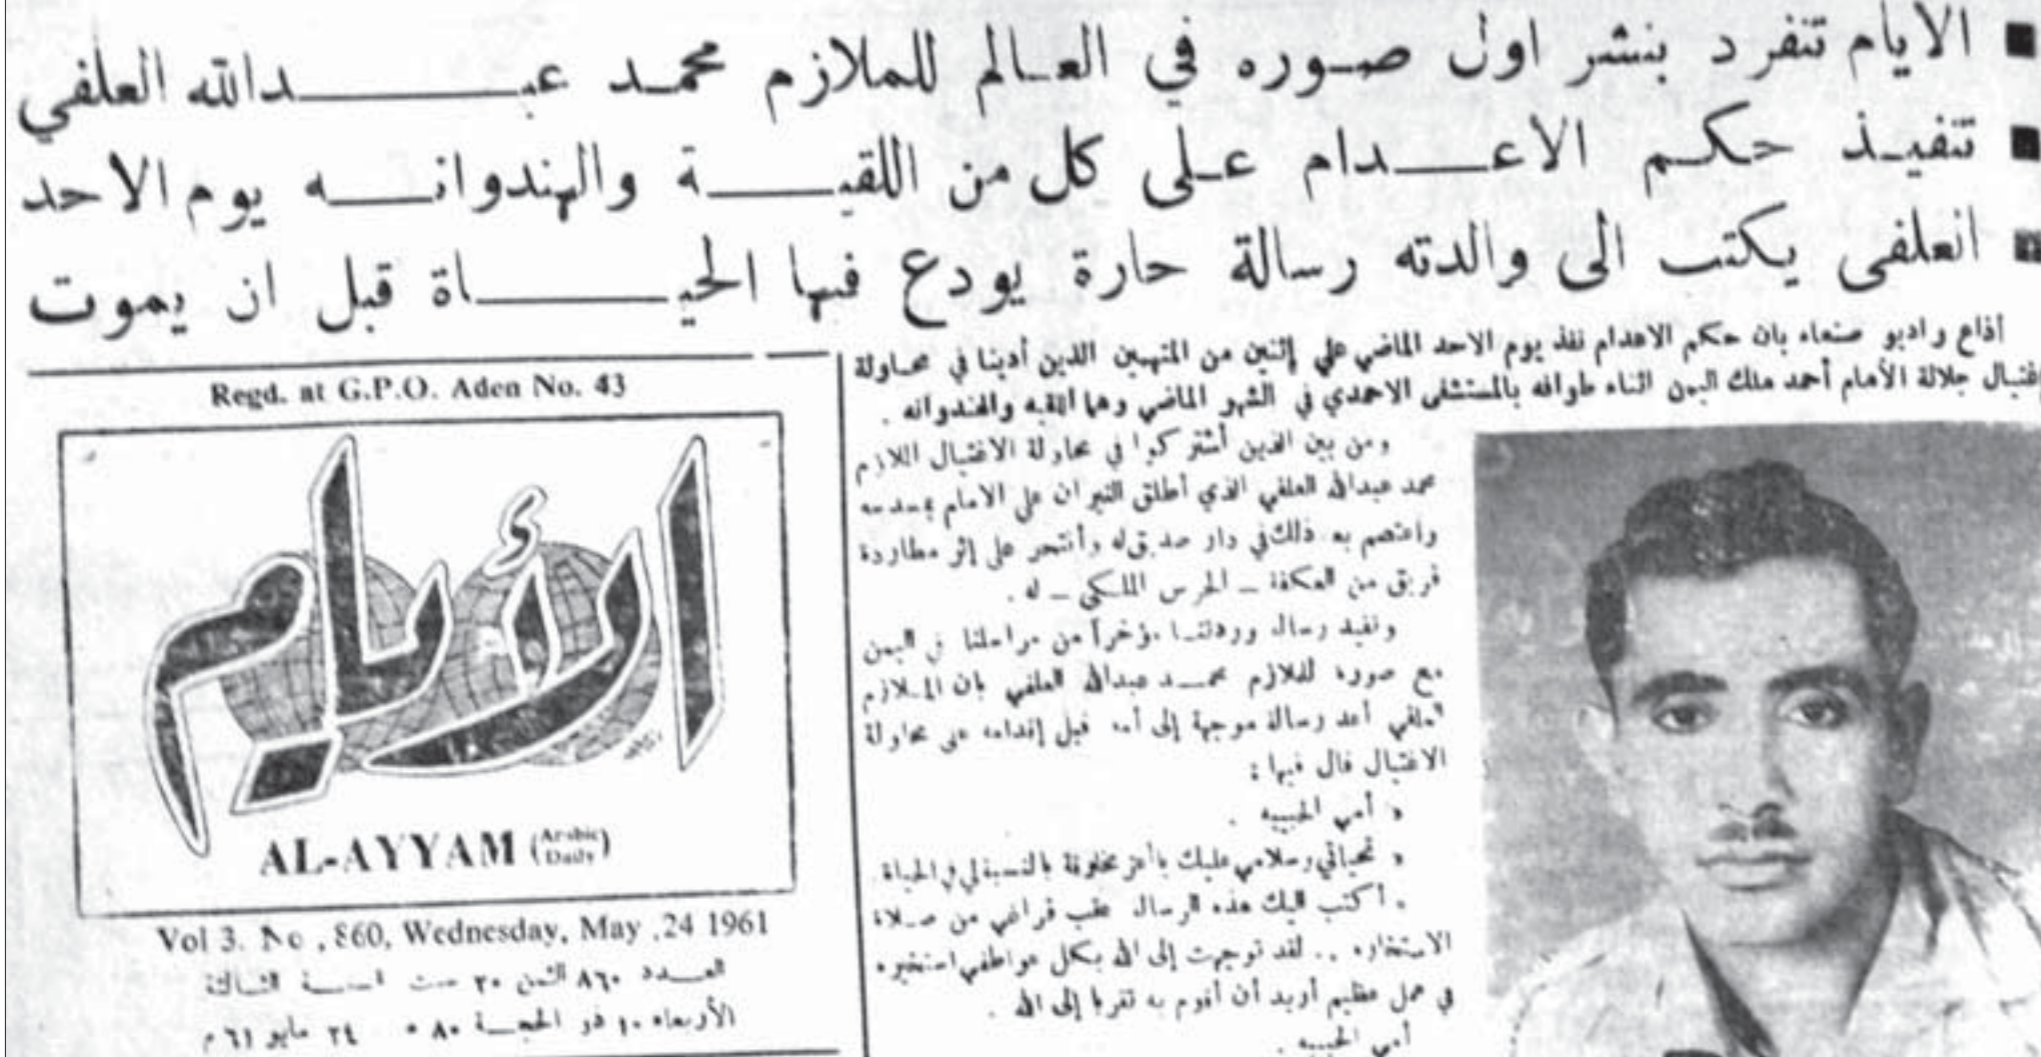 الايام تنفرد بنشر اول صوره في العالم للملازم محمد عبدالله العلفي
تنفيذ حكم الاعدام على كل من اللقية والهندوانه يوم الاحد
العلفي يكتب الى والدته رسالة حارة يودع فيها الحياة قبل ان يموت
أذاع راديو صنعاء بان حكم الاعدام نفذ يوم الاحد الماضي علي إثنين من المتهمين الذين أدينا في محاولة
إغتيال جلالة الأمام أحمد ملك اليمن اثناء طوافه بالمستشفى الاحمدي في الشهر الماضي وهما اللقيه والهندوانه .
ومن بين الذين أشتركوا في محاولة الاغتيال الملازم
محمد عبدالله العلفي الذي أطلق النيران على الامام بمسدسه
واعتصم بعد ذلك في دار صديق له وأنتحر على إثر مطاردة
فريق من العكفة – الحرس الملكي – له .
وتفيد رسالة وردتنا مؤخرآ من مراسلنا في اليمن
مع صورة للملازم محمد عبدالله العلفي بان الملازم
العلفي أعد رسالة موجهة إلى أمه قبل إقدامه على محاولة
الاغتيال قال فيها :
« أمي الحبيبه .
« تحياتي وسلامي عليك يا أعز مخلوقة بالنسبة لي في الحياة
أكتب اليك هذه الرسالة عقب فراغي من صلاة
الاستخاره .. لقد توجهت إلى الله بكل عواطفي استخيره
في عمل عظيم أريد أن أقوم به تقربا إلى الله .
أمي الحبيبه .
Regd. at G.P.O. Aden No. 43
الأيام
AL-AYYAM (Arabic Daily)
Vol 3. No ,860, Wednesday, May ,24 1961
العدد ٨٦٠ الثمن ٣٠ سنت السنة الثالثة
الأربعاء ١٠ ذو الحجة ٨٠ ٢٤ مايو ٦١ م